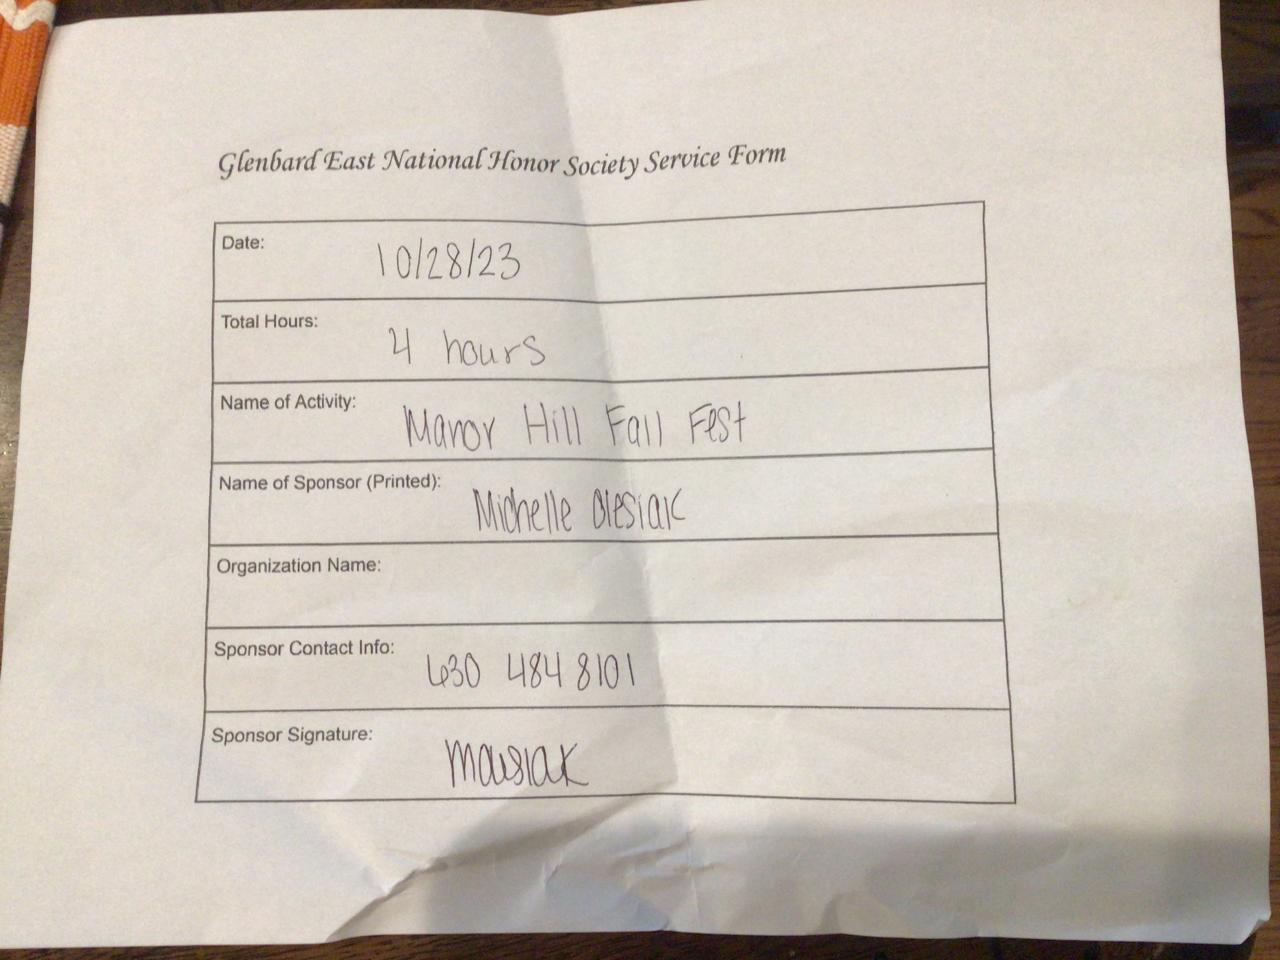 Glenbard East National Honor Society Service Form
Date: 10/28/23
Total Hours: 4 hours
Name of Activity: Manor Hill Fall Fest
Name of Sponsor (Printed): Michelle Olesiak
Organization Name:
Sponsor Contact Info: 630 484 8101
Sponsor Signature: